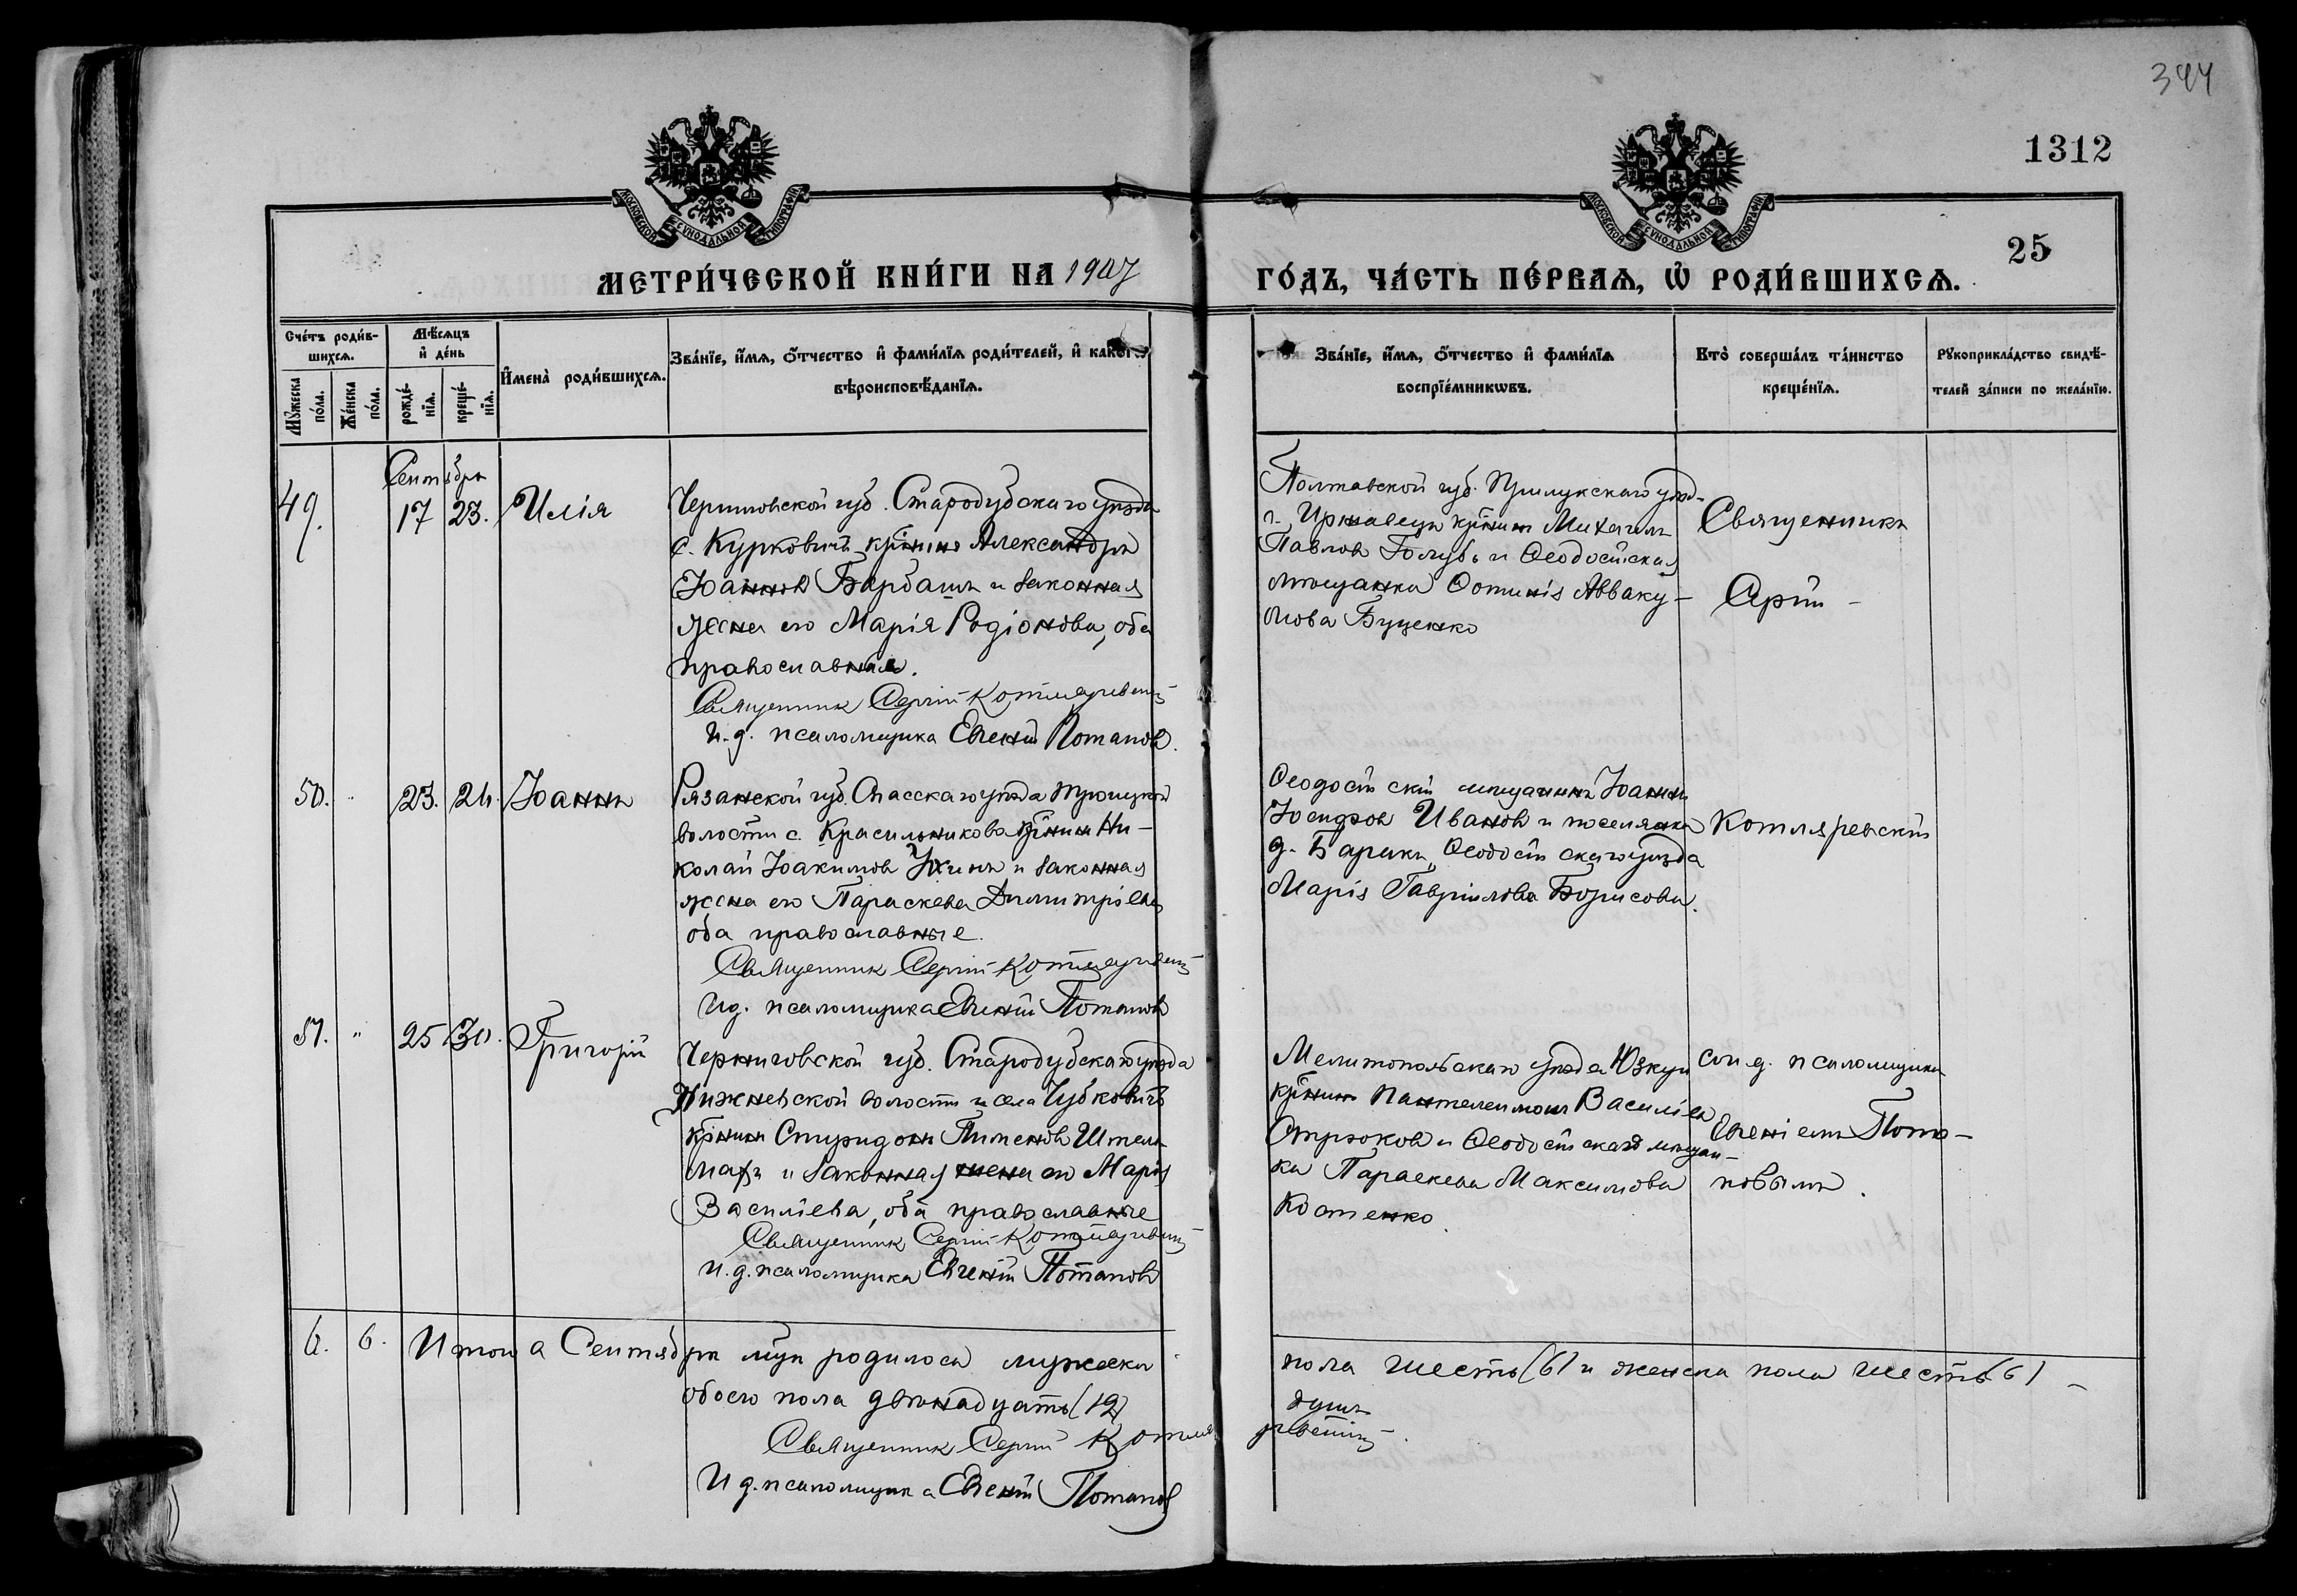 344
1312
25
МОСКОВСКОЙ СѴНОДАЛЬНОЙ ТИПОГРАФІИ
МОСКОВСКОЙ СѴНОДАЛЬНОЙ ТИПОГРАФІИ
МЕТРИ́ЧЕСКОЙ КНИ́ГИ НА 1907
ГО́ДЪ, ЧА́СТЬ ПЕ́РВАѦ, Ѡ҆ РОДИ́ВШИХСѦ.
Сче́тъ роди́в-
шихсѧ.
Мѣ́сѧцъ
и҆ де́нь
Мꙋ́жеска
по́ла.
Же́нска
по́ла.
рожде́-
нїѧ.
креще́-
нїѧ.
И҆мена̀ роди́вшихсѧ.
Зва́нїе, и҆́мѧ, ѻ҆́тчество и҆ фами́лїѧ роди́телей, и҆ како́г
вѣроисповѣ́данїѧ.
Зва́нїе, и҆́мѧ, ѻ҆́тчество и҆ фами́лїѧ
воспрїе́мникѡвъ.
Кто̀ соверша́лъ та́инство
креще́нїѧ.
Рꙋкоприкла́дство свидѣ́-
телей за́писи по жела́нїю.
Сентября
49. 17 23. Илія
Черниговской губ. Стародубскаго уѣзда
с. Курковичъ крнин Александръ
Іоаннов Барбашъ и законная
жена его Марія Родіонова, оба
православныя.
Священник Сергій Котляревскій
И. д. псаломщика Евгеній Потапов.
Полтавской губ. Прилукскаго уѣзд-
крнин Михаилъ
Павлов Голубь и Ѳеодосійская
мѣщанка Фотинія Аввaку-
мова Буценко
Священникъ
Сергій
50. " 23. 24. Іоаннъ
Рязанской губ. Спасскаго уѣзда Троицкой
волости с. Красильникова крнин Ни-
колай Іоакимов и законная
жена его Параскева Димитріева
оба православные.
Священник Сергій Котляревскій
И д. псаломщика Евгеній Потапов
Ѳеодосійскій мѣщанинъ Іоаннъ
Іосифов Иванов и поселянка
д. Баракъ, Ѳеодосійскаго уѣзда
Марія Гавріилова Борисова.
Котляревскій
51. " 25 30. Григорій
Черниговской губ. Стародубскаго уѣзда
волости села Чубковичъ
крнин Спиридон Пименов Штель-
махъ и законная жена его Марія
Василіева, оба православные
Священник Сергій Котляревскій
И. д. псаломщика Евгеній Потапов
Мелитопольскаго уѣзда Юзкуи
крнин Пантелеимон Василіев
Стрюков и Ѳеодосійская мѣщан-
ка Параскева Максимова
Костенко.
с и. д. псаломщика
Евгеніемъ Пота-
повымъ.
6. 6. Итого а Сентябрѣ м-цѣ родилось мужеска
пола шесть (6) и женска пола шесть (6) -
обоего пола двѣнадцать (12)
душъ
Священник Сергій Котля
ревскій.
И д. псаломщика Евгеній Потапов